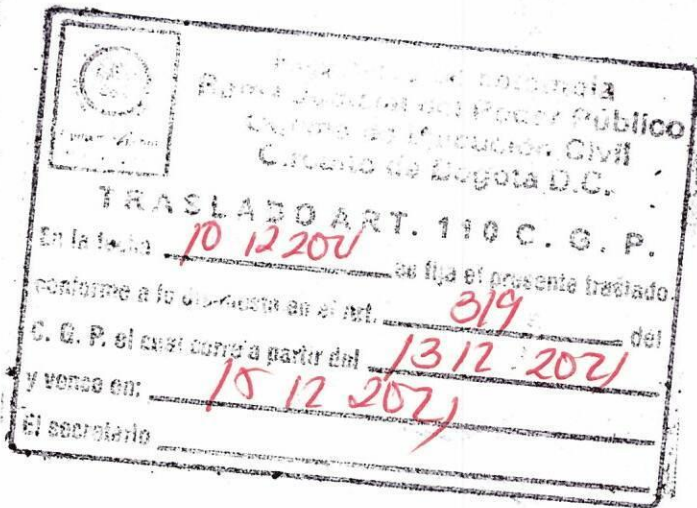 República de Colombia
Rama Judicial del Poder Público
Oficina de Ejecución Civil
Circuito de Bogotá D.C.
TRASLADO ART. 110 C. G. P.
En la fecha 10 12 2021 se fija el presente traslado
conforme a lo dispuesto en el Art. 319 del
C. G. P. el cual corre a partir del 13 12 2021
y vence en: 15 12 2021
El secretario